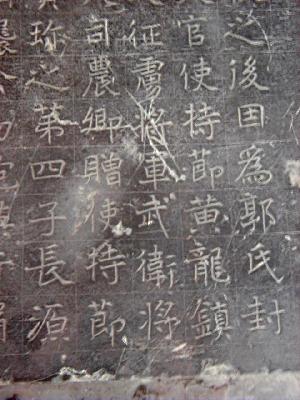 之後因為郭氏封
官使持節黄龍鎮
征虜将軍武衛将
司農卿贈使持節
珎之第四子長源